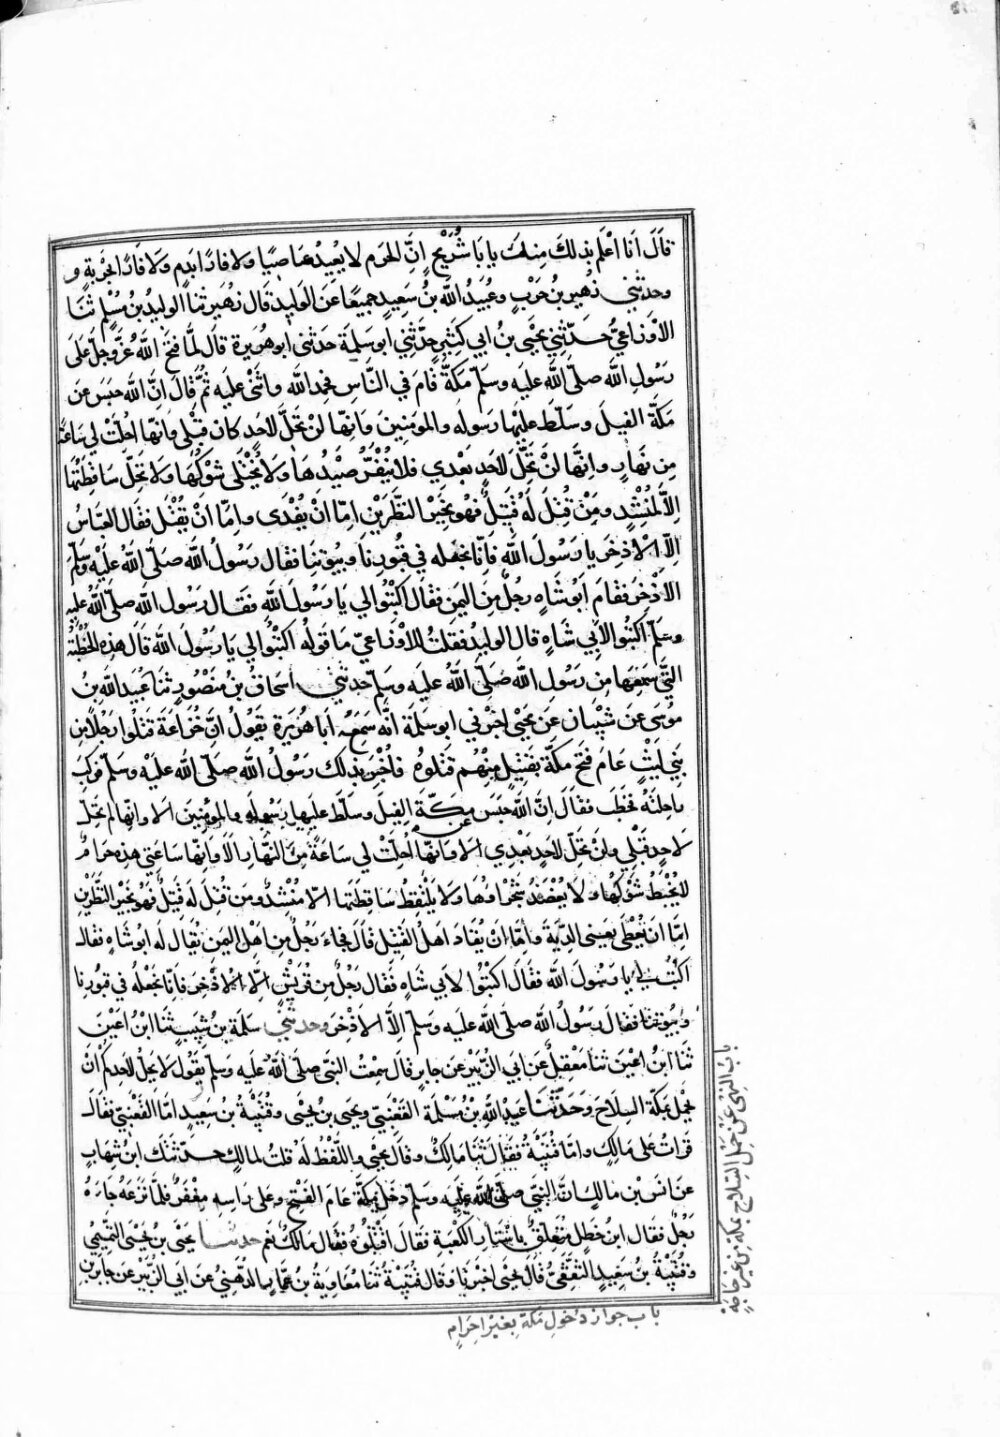 قال انا اعلم بذلك منك يا با شريح ان الحرم لا يعيذ عاصيا ولا فارا بدم ولا فارا بخربة و
وحدثني زهير بن حرب وعبيد الله بن سعيد جميعا عن الوليد قال زهير ثنا الوليد بن مسلم ثنا
الاوزاعي حدثني يحيى بن ابي كثير حدثني ابو سلمة حدثني ابو هريرة قال لما فتح الله عز وجل على
رسول الله صلى الله عليه وسلم مكة قام في الناس فحمد الله واثنى عليه ثم قال ان الله حبس عن
مكة الفيل وسلط عليها رسوله والمومنين وانها لن تحل لاحد كان قبلي وانها احلت لي ساعة
من نهار وانها لن تحل لاحد بعدي فلا ينفر صيدها ولا يختلى شوكها ولا تحل ساقطتها
الا لمنشد ومن قتل له قتيل فهو بخير النظرين اما ان يفدى واما ان يقتل فقال العباس
الا الاذخر يا رسول الله فانا نجعله في قبورنا وبيوتنا فقال رسول الله صلى الله عليه وسلم
الا الاذخر فقام ابو شاه رجل من اليمن فقال اكتبوا لي يا رسول الله فقال رسول الله صلى الله عليه
وسلم اكتبوا لابي شاه قال الوليد فقلت للاوزاعي ما قوله اكتبوا لي يا رسول الله قال هذه الخطبة
التي سمعها من رسول الله صلى الله عليه وسلم حدثني اسحاق بن منصور ثنا عبيد الله بن
موسى عن شيبان عن يحيى اخبرني ابو سلمة انه سمع ابا هريرة يقول ان خزاعة قتلوا رجلا من
بني ليث عام فتح مكة بقتيل منهم قتلوه فاخبر بذلك رسول الله صلى الله عليه وسلم فركب
راحلته فخطب فقال ان الله حبس عن مكة الفيل وسلط عليها رسوله والمؤمنين الا وانها لم تحل
لاحد قبلي ولن تحل لاحد بعدي الا وانها احلت لي ساعة من النهار الا وانها ساعتي هذه حرام
لا يخبط شوكها ولا يعضد شجراوها ولا يلتقط ساقطتها الا منشد ومن قتل له قتيل فهو بخير النظرين
اما ان يعطى يعني الدية واما ان يقاد اهل القتيل قال فجاء رجل من اهل اليمن يقال له ابو شاه فقال
اكتب لي يا رسول الله فقال اكتبوا لابي شاه فقال رجل من قريش الا الاذخر فانا نجعله في قبورنا
وبيوتنا فقال رسول الله صلى الله عليه وسلم الا الاذخر وحدثني سلمة بن شبيب ثنا ابن اعين
ثنا ابن اعين ثنا معقل عن ابي الزبير عن جابر قال سمعت النبي صلى الله عليه وسلم يقول لا يحل لاحدكم ان
يحمل بمكة السلاح وحدثنا عبد الله بن مسلمة القعنبي ويحيى بن يحيى وقتيبة بن سعيد اما القعنبي فقال
قرات على مالك واما قتيبة فقال ثنا مالك وقال يحيى واللفظ له قلت لمالك حدثك ابن شهاب
عن انس بن مالك ان النبي صلى الله عليه وسلم دخل مكة عام الفتح وعلى راسه مغفر فلما نزعه جاءه
رجل فقال ابن خطل متعلق باستار الكعبة فقال اقتلوه فقال مالك نعم حدثنا يحيى بن يحيى التميمي
وقتيبة بن سعيد الثقفي قال يحيى اخبرنا وقال قتيبة ثنا معاوية بن عمار الدهني عن ابي الزبير عن جابر بن
باب النهي عن حمل السلاح بمكة من غير حاجة
باب جواز دخول مكة بغير احرام